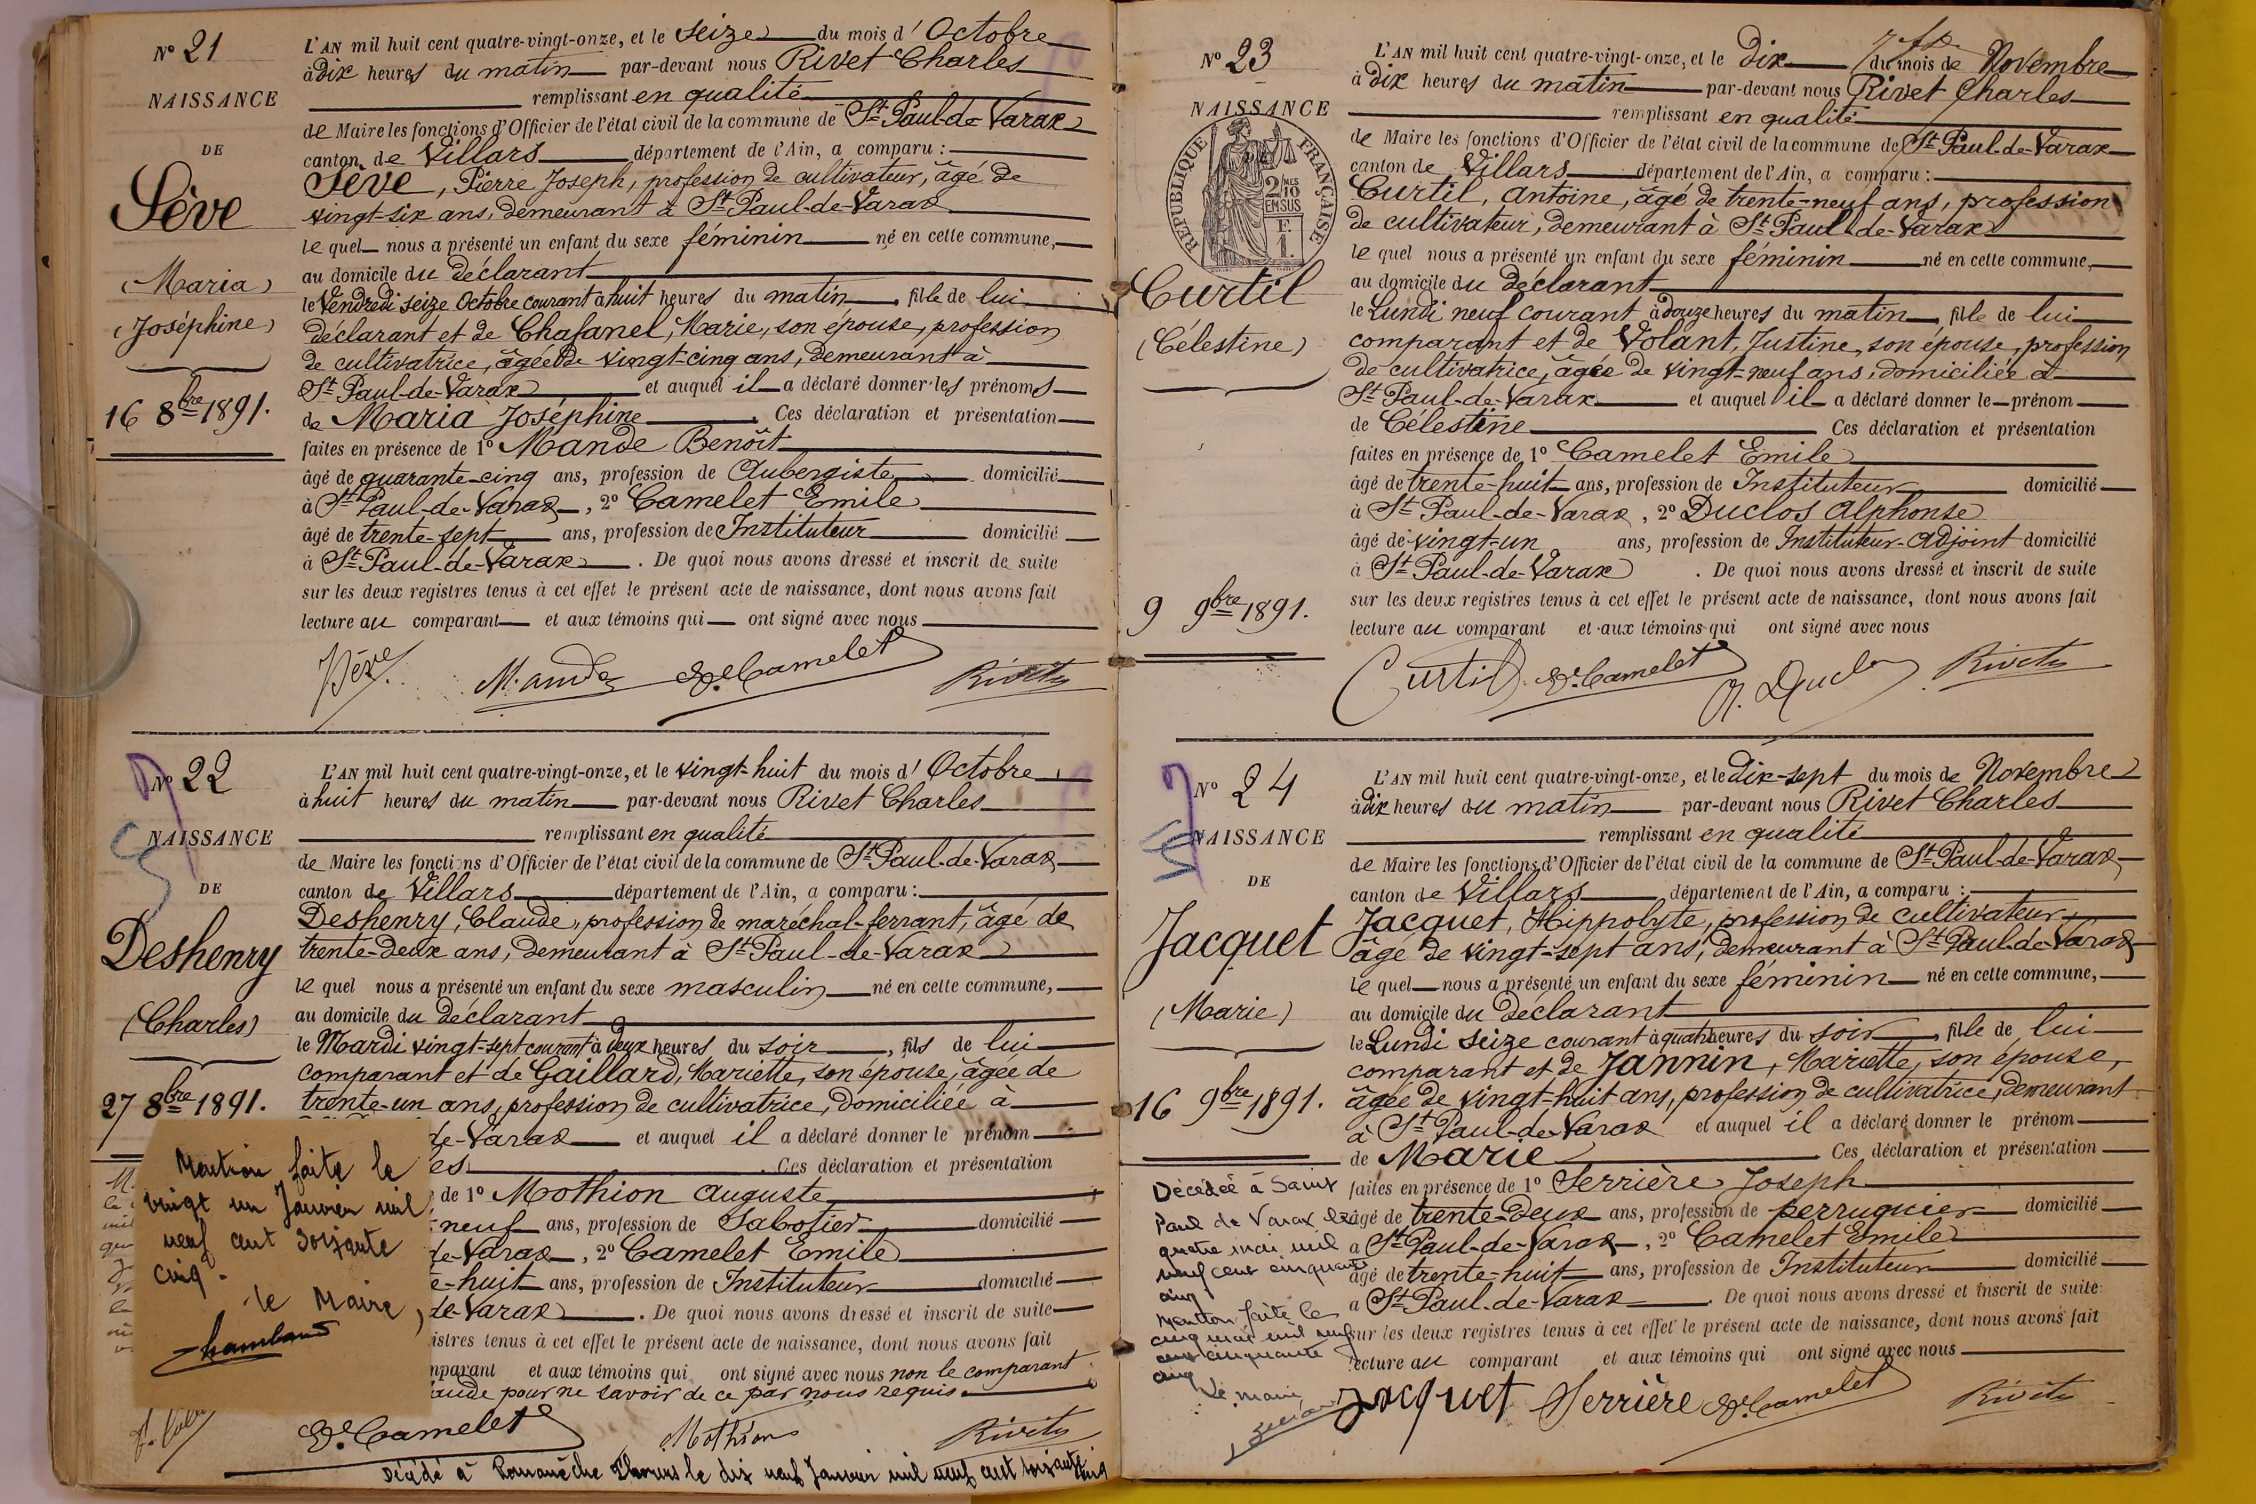 N° 21
NAISSANCE
DE
Sève
(Maria)
(Joséphine)
16 8bre 1891.
L'AN mil huit cent quatre-vingt-onze, et le seize du mois d'Octobre
à dix heures du matin par-devant nous Rivet Charles
remplissant en qualité
de Maire les fonctions d'Officier de l'état civil de la commune de St Paul-de-Varax
canton de Villars département de l'Ain, a comparu :
Sève, Pierre Joseph, profession de cultivateur, âgé de
vingt-six ans, demeurant à St Paul-de-Varax
le quel nous a présenté un enfant du sexe féminin né en cette commune,
au domicile du déclarant
le Vendredi seize Octobre courant à huit heures du matin, fille de lui
déclarant et de Chafanel, Marie, son épouse, profession
de cultivatrice, âgée de vingt-cinq ans, demeurant à
St Paul-de-Varax et auquel il a déclaré donner les prénoms
de Maria Joséphine. Ces déclaration et présentation
faites en présence de 1° Mande Benoît
âgé de quarante-cinq ans, profession de Aubergiste domicilié
à St Paul-de-Varax, 2° Camelet Emile
âgé de trente-sept ans, profession de Instituteur domicilié
à St Paul-de-Varax. De quoi nous avons dressé et inscrit de suite
sur les deux registres tenus à cet effet le présent acte de naissance, dont nous avons fait
lecture au comparant et aux témoins qui ont signé avec nous
Sève Mande Camelet Rivet
N° 22
NAISSANCE
DE
Deshenry
(Charles)
27 8bre 1891.
L'AN mil huit cent quatre-vingt-onze, et le vingt-huit du mois d'Octobre
à huit heures du matin par-devant nous Rivet Charles
remplissant en qualité
de Maire les fonctions d'Officier de l'état civil de la commune de St Paul-de-Varax
canton de Villars département de l'Ain, a comparu :
Deshenry, Claude, profession de maréchal-ferrant, âgé de
trente-deux ans, demeurant à St Paul-de-Varax
le quel nous a présenté un enfant du sexe masculin né en cette commune,
au domicile du déclarant
le Mardi vingt-sept courant à deux heures du soir, fils de lui
comparant et de Gaillard, Mariette, son épouse, âgée de
trente-un ans, profession de cultivatrice, domiciliée à
de-Varax et auquel il a déclaré donner le prénom
es. Ces déclaration et présentation
de 1° Mothion Auguste
neuf ans, profession de Sabotier domicilié
de-Varax, 2° Camelet Emile
e-huit ans, profession de Instituteur domicilié
de-Varax. De quoi nous avons dressé et inscrit de suite
istres tenus à cet effet le présent acte de naissance, dont nous avons fait
mparant et aux témoins qui ont signé avec nous non le comparant
aude pour ne savoir de ce par nous requis.
Camelet Mothion Rivet
Mention faite le
vingt un Janvier mil
neuf cent soixante
cinq.
le Maire,
Décédé à Romanèche Thorins le dix neuf Janvier mil neuf cent soixante cinq
N° 23
NAISSANCE
RÉPUBLIQUE FRANÇAISE
2/10MES
EN SUS
F.
1.
Curtil
(Célestine)
9 9bre 1891.
L'AN mil huit cent quatre-vingt-onze, et le dix du mois de Novembre
à dix heures du matin par-devant nous Rivet Charles
remplissant en qualité
de Maire les fonctions d'Officier de l'état civil de la commune de St Paul-de-Varax
canton de Villars département de l'Ain, a comparu :
Curtil, Antoine, âgé de trente-neuf ans, profession
de cultivateur, demeurant à St Paul-de-Varax
le quel nous a présenté un enfant du sexe féminin né en cette commune,
au domicile du déclarant
le Lundi neuf courant à douze heures du matin, fille de lui
comparant et de Volant, Justine, son épouse, profession
de cultivatrice, âgée de vingt-neuf ans, domiciliée à
St Paul-de-Varax et auquel il a déclaré donner le prénom
de Célestine Ces déclaration et présentation
faites en présence de 1° Camelet Emile
âgé de trente-huit ans, profession de Instituteur domicilié
à St Paul-de-Varax, 2° Duclos Alphonse
âgé de vingt-un ans, profession de Instituteur-Adjoint domicilié
à St Paul-de-Varax. De quoi nous avons dressé et inscrit de suite
sur les deux registres tenus à cet effet le présent acte de naissance, dont nous avons fait
lecture au comparant et aux témoins qui ont signé avec nous
Curtil Camelet A. Duclos Rivet
N° 24
NAISSANCE
DE
Jacquet
(Marie)
16 9bre 1891.
L'AN mil huit cent quatre-vingt-onze, et le dix-sept du mois de Novembre
à dix heures du matin par-devant nous Rivet Charles
remplissant en qualité
de Maire les fonctions d'Officier de l'état civil de la commune de St Paul-de-Varax
canton de Villars département de l'Ain, a comparu :
Jacquet, Hippolyte, profession de cultivateur
âgé de vingt-sept ans, demeurant à St Paul-de-Varax
le quel nous a présenté un enfant du sexe féminin né en cette commune,
au domicile du déclarant
le Lundi seize courant à quatre heures du soir, fille de lui
comparant et de Jannin, Mariette, son épouse,
âgée de vingt-huit ans, profession de cultivatrice, demeurant
à St Paul-de-Varax et auquel il a déclaré donner le prénom
de Marie Ces déclaration et présentation
faites en présence de 1° Serrière Joseph
âgé de trente-deux ans, profession de perruquier domicilié
à St Paul-de-Varax, 2° Camelet Emile
âgé de trente-huit ans, profession de Instituteur domicilié
à St Paul-de-Varax. De quoi nous avons dressé et inscrit de suite
sur les deux registres tenus à cet effet le présent acte de naissance, dont nous avons fait
lecture au comparant et aux témoins qui ont signé avec nous
Jacquet Serrière Camelet Rivet
Décédée à Saint
Paul de Varax le
quatre mai mil
neuf cent cinquante
cinq
Mention faite le
cinq mai mil neuf
cent cinquante
cinq
Le maire